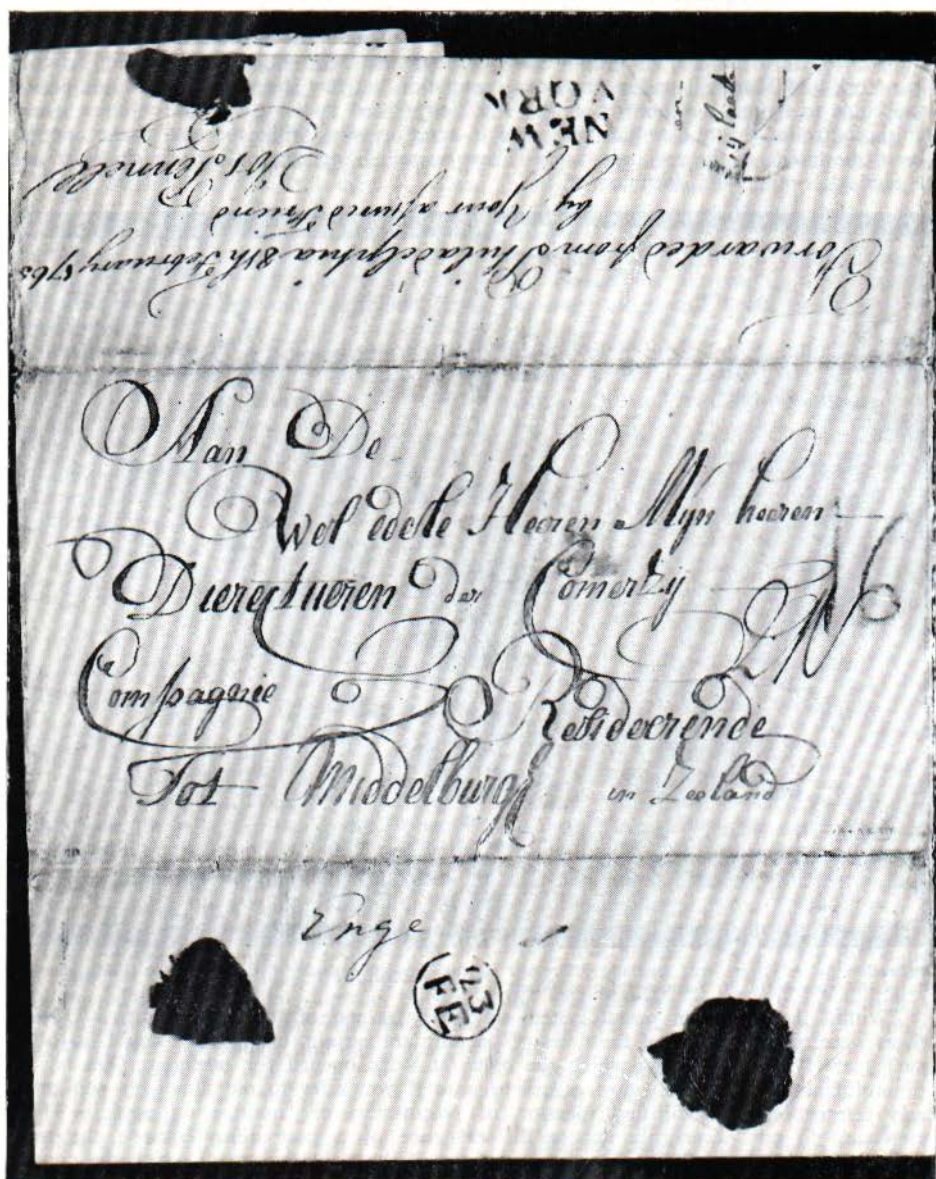 NEW
YORK
Forwarded from Philadelphia 8th February 1765
by Your assured Friend
Aan De
Wel edele Heeren Mijn heeren
Dierectueren der Comerzy
Compagnie Resideerende
Tot Middelburgh in Zeeland
Enge
23
FE